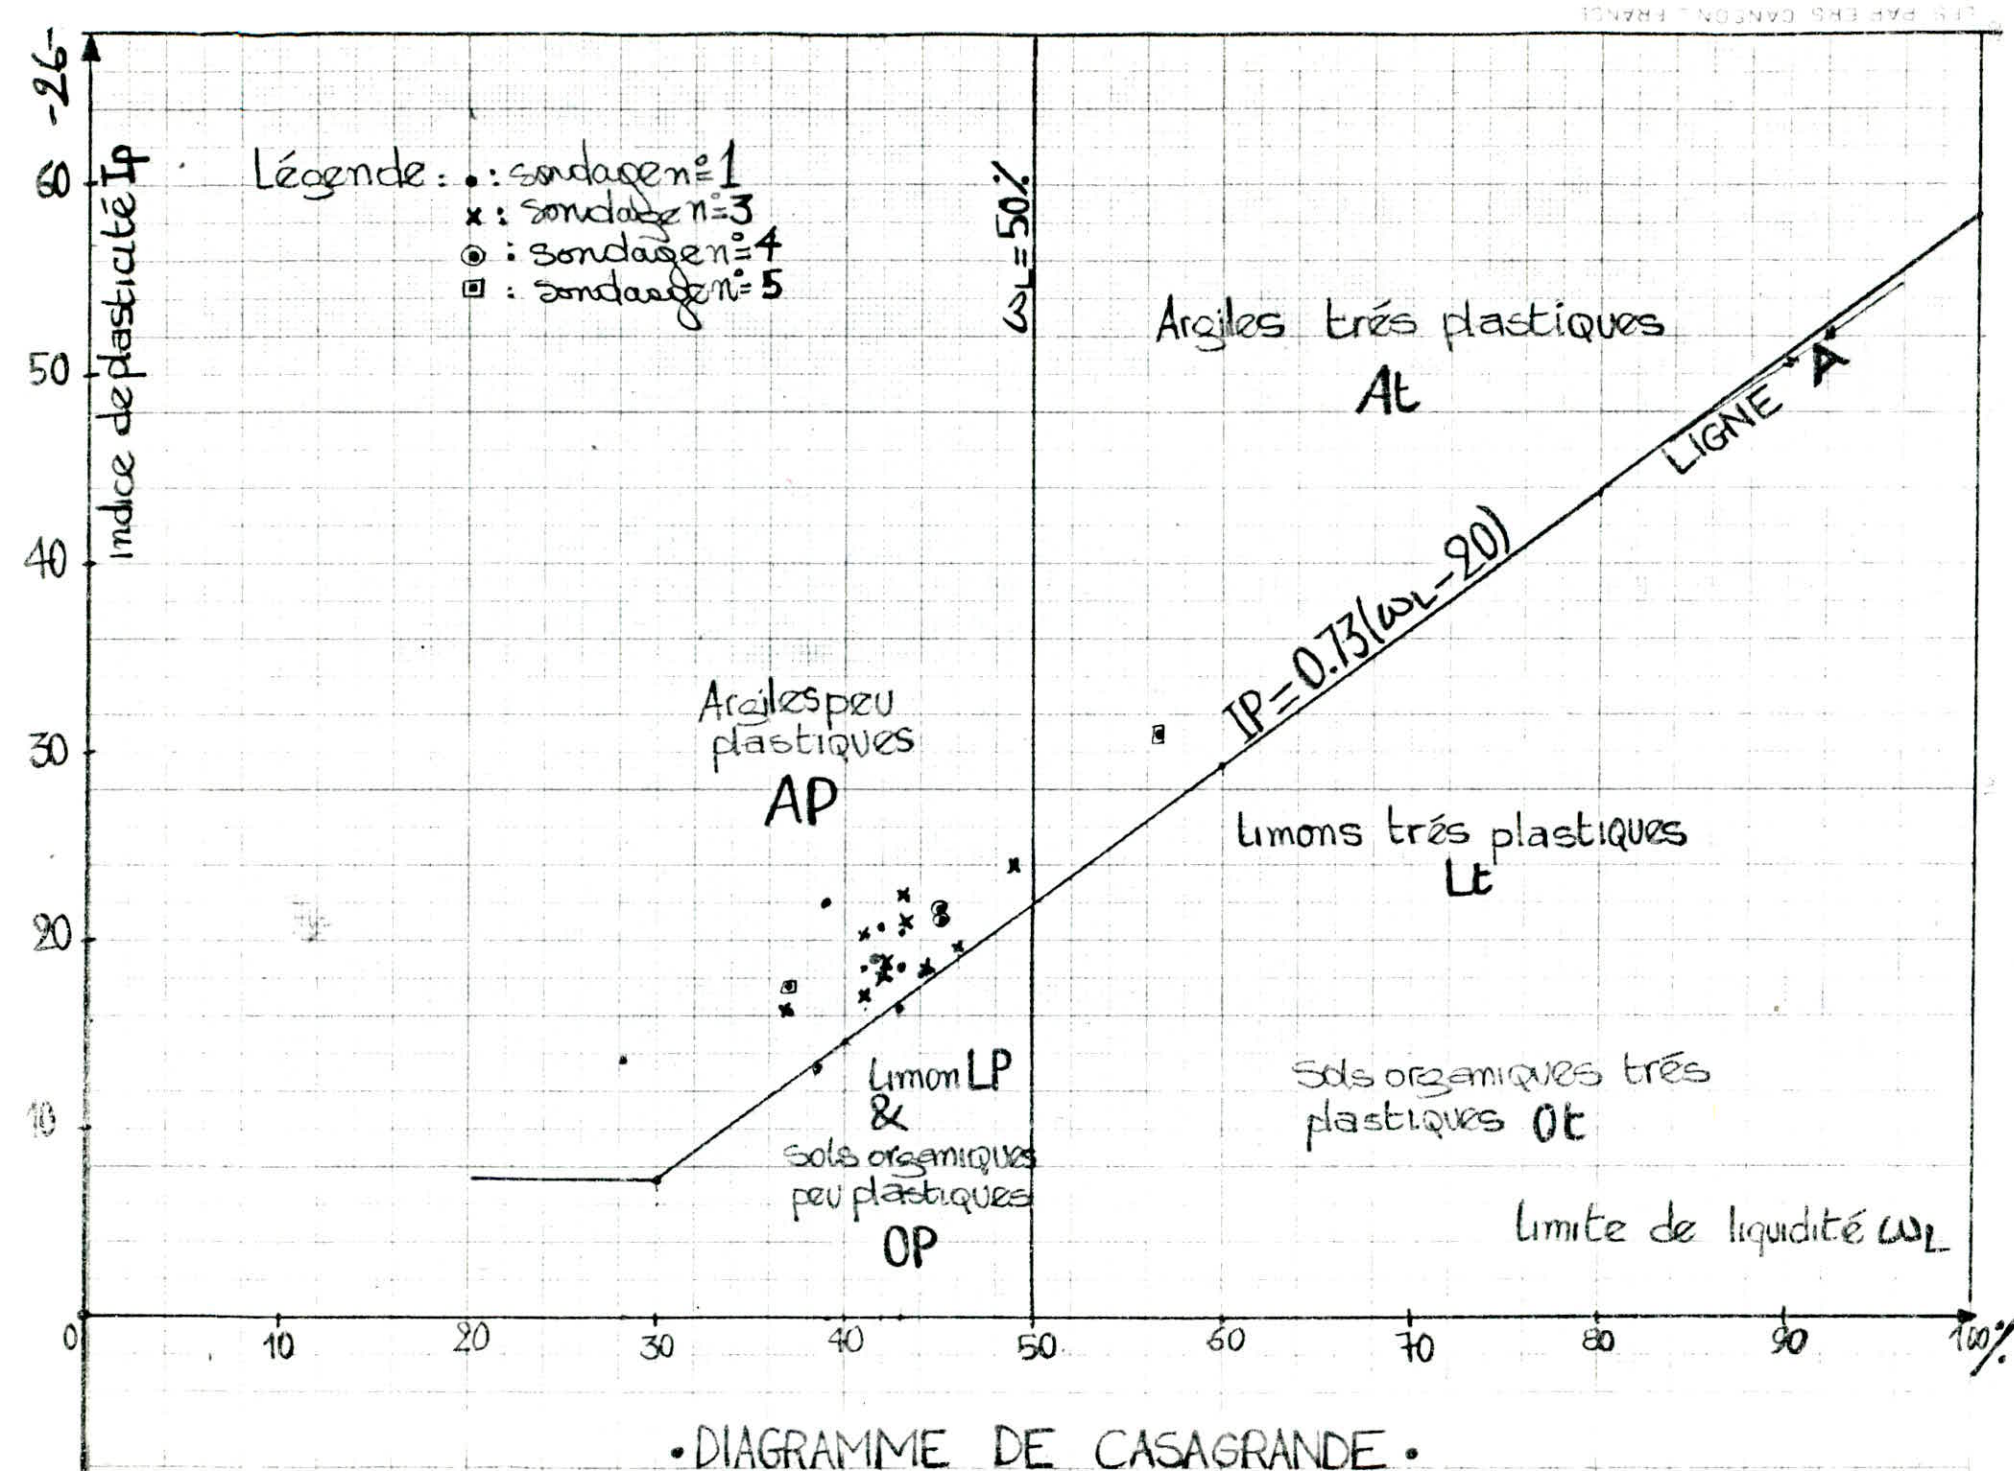 LES PAPIERS CANSON - FRANCE
-26-
Indice de plasticité Ip
60
50
40
30
20
10
0
Légende: • : sondage n°=1
x : sondage n°=3
⊙ : sondage n°=4
⊡ : sondage n°=5
ωL=50%
Argiles trés plastiques
At
LIGNE A
IP=0.73(ωL-20)
Argiles peu
plastiques
AP
Limons trés plastiques
Lt
Limon LP
&
Sols organiques
peu plastiques
OP
Sols organiques trés
plastiques Ot
Limite de liquidité ωL
10 20 30 40 50 60 70 80 90 100%
• DIAGRAMME DE CASAGRANDE •